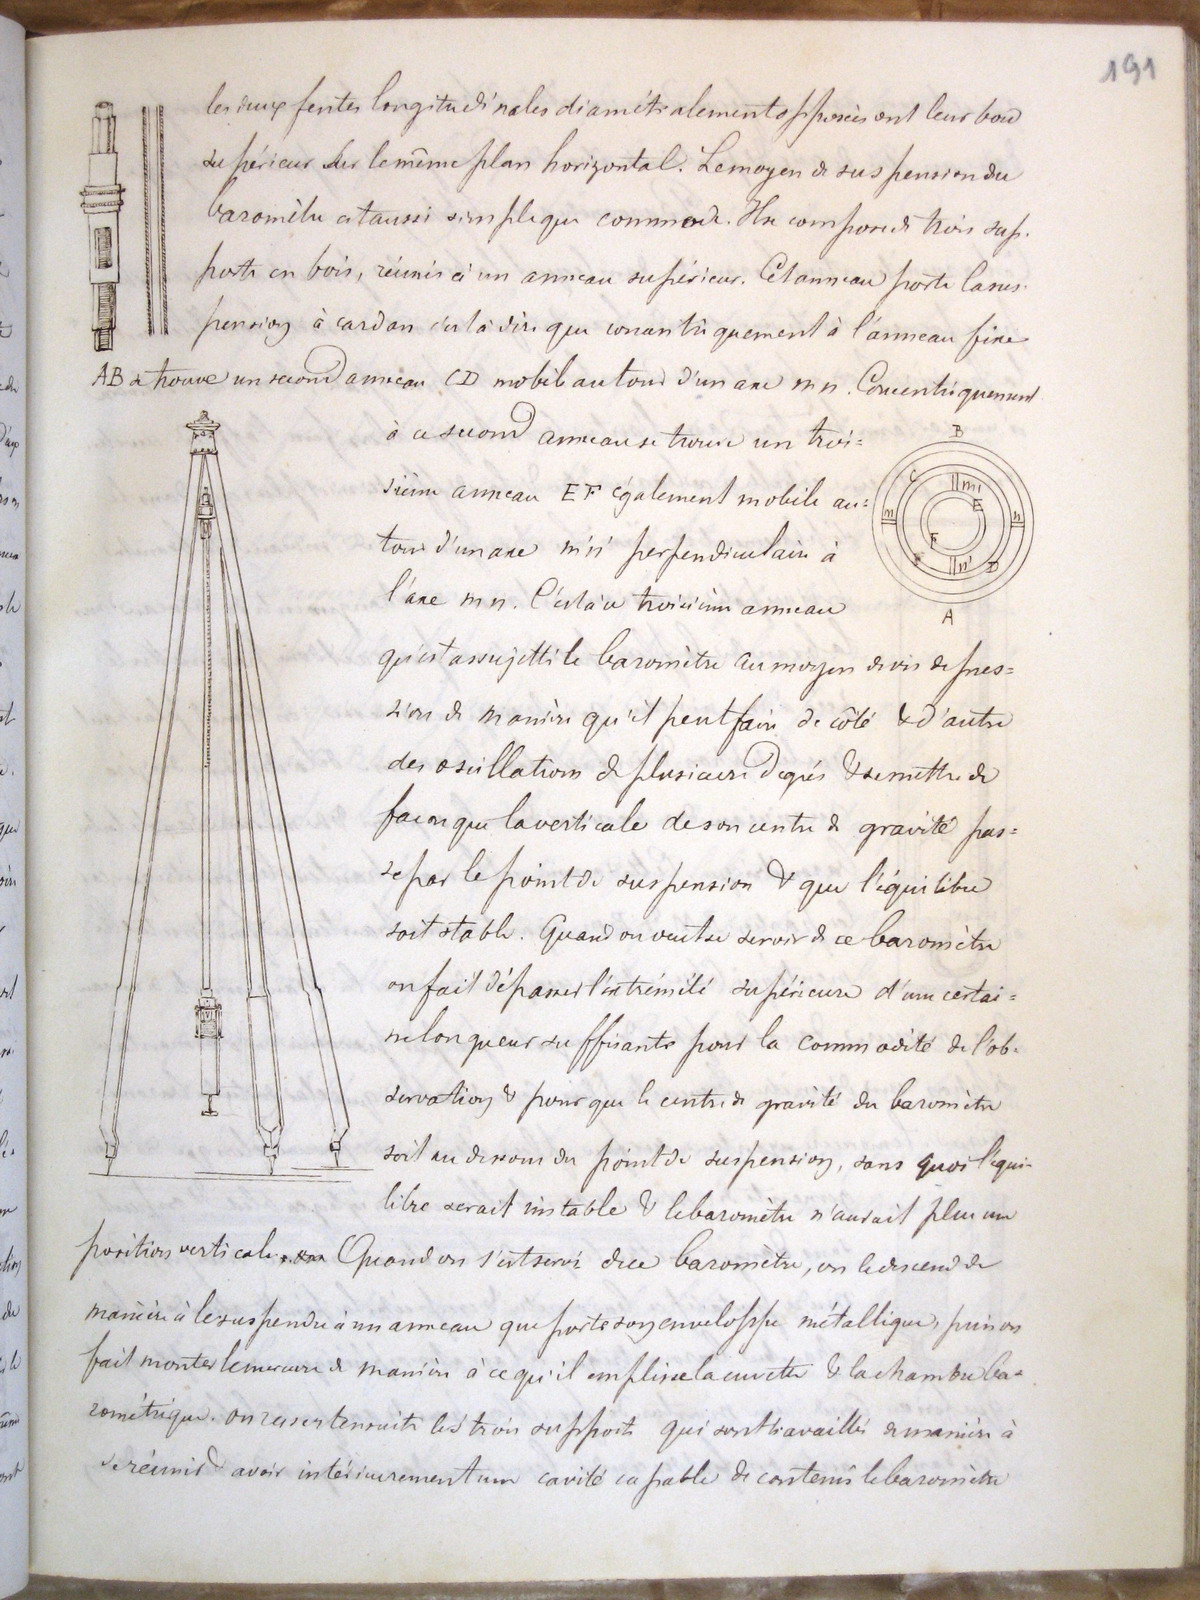 191
les deux fentes longitudinales diamétralement opposées ont leur bord
supérieur sur le même plan horizontal. Le moyen de suspension du
baromètre est aussi simple que commode. Il se compose de trois sup-
ports en bois, réunis à un anneau supérieur. Cet anneau porte la sus-
pension à cardan c'est à dire que concentriquement à l'anneau fixe
AB se trouve un second anneau CD mobile autour d'un axe mn. Concentriquement
à ce second anneau se trouve un troi=
sième anneau EF également mobile au=
tour d'un axe m'n' perpendiculaire à
l'axe mn. C'est à ce troisième anneau
qu'est assujetti le baromètre au moyen de vis de pres=
sion de manière qu'il peut faire de côté & d'autre
des oscillations de plusieurs degrés & se mettre de
façon que la verticale de son centre de gravité pas=
se par le point de suspension & que l'équilibre
soit stable. Quand on veut se servir de ce baromètre
on fait dépasser l'extrémité supérieure d'une certai=
ne longueur suffisante pour la commodité de l'ob-
servation & pour que le centre de gravité du baromètre
soit au dessous du point de suspension, sans quoi l'équi-
libre serait instable & le baromètre n'aurait plus une
position verticale. Quand on s'est servi de ce baromètre, on le descend de
manière à le suspendre à un anneau que porte son enveloppe métallique, puis on
fait monter le mercure de manière à ce qu'il emplisse la cuvette & la chambre ba-
rométrique. on resserre ensuite les trois supports qui sont travaillés de manière à
se réunir & avoir intérieurement une cavité capable de contenir le baromètre
B
C
m'
E
m
n
F
F
n'
D
A